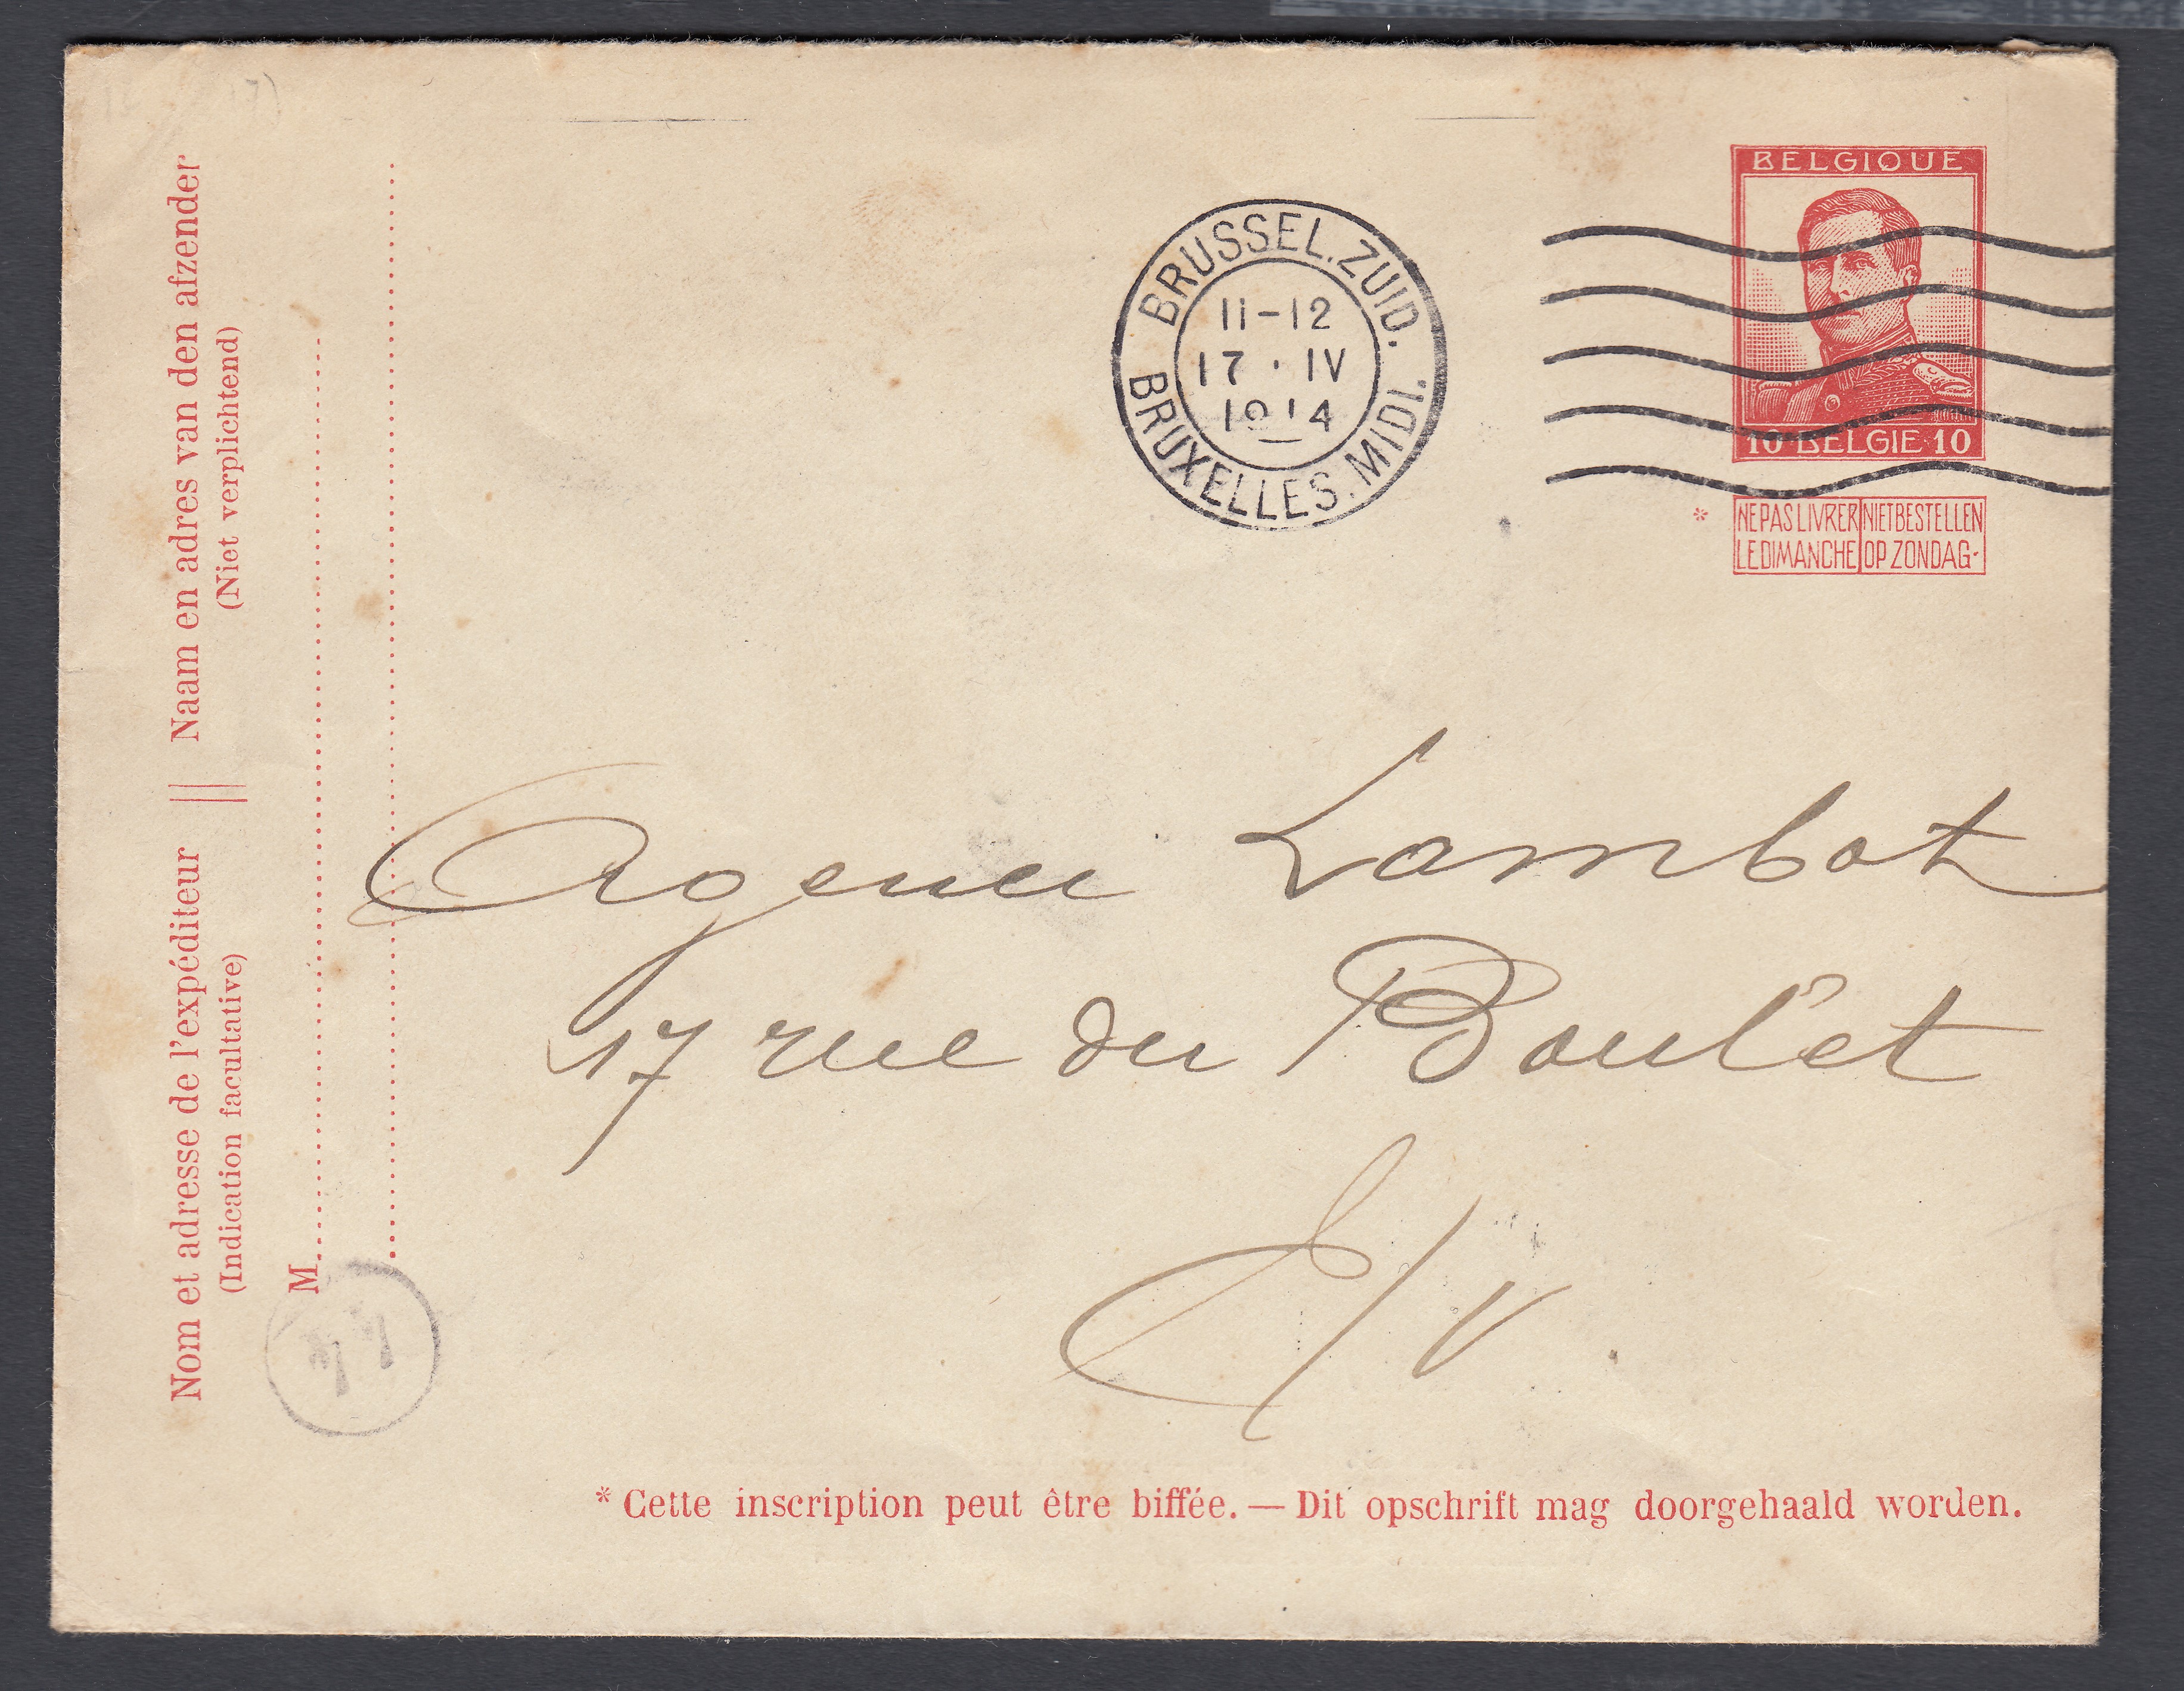 BELGIQUE
10 BELGIE 10
* NE PAS LIVRER LE DIMANCHE
NIET BESTELLEN OP ZONDAG-
BRUSSEL.ZUID.
11-12
17 · IV
1914
BRUXELLES.MIDI.
Naam en adres van den afzender
(Niet verplichtend)
Nom et adresse de l'expéditeur
(Indication facultative)
M
Agence Lambot
17 rue du Boulet
E/V
* Cette inscription peut être biffée. — Dit opschrift mag doorgehaald worden.